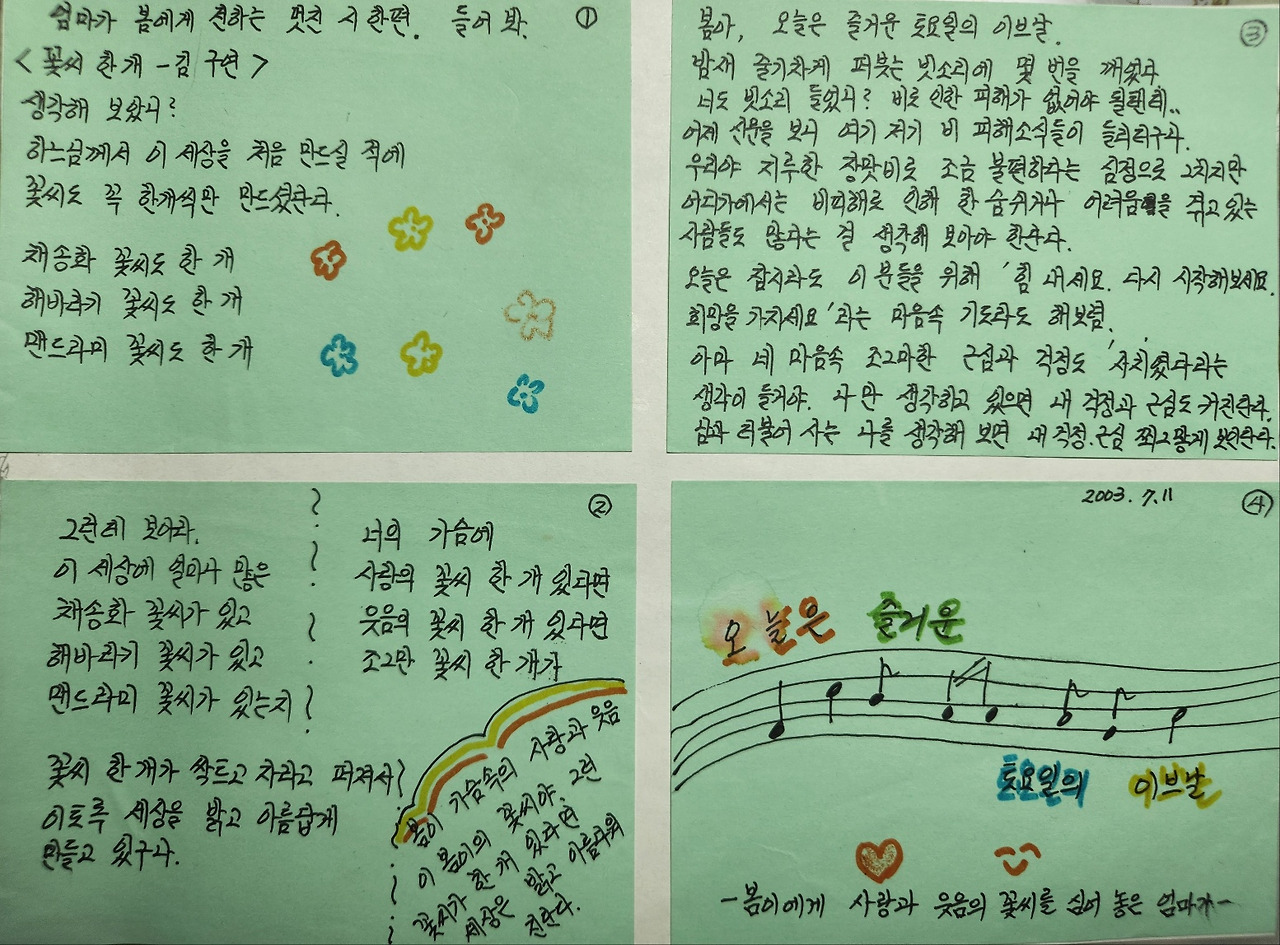 엄마가 봄에게 전하는 멋진 시 한편. 들어 봐. ①
< 꽃씨 한 개 - 김 구연 >
생각해 보았니?
하느님께서 이 세상을 처음 만드실 적에
꽃씨도 꼭 한개씩만 만드셨단다.
채송화 꽃씨도 한 개
해바라기 꽃씨도 한 개
맨드라미 꽃씨도 한 개
②
그런데 보아라.
이 세상에 얼마나 많은
채송화 꽃씨가 있고
해바라기 꽃씨가 있고
맨드라미 꽃씨가 있는지
꽃씨 한 개가 싹트고 자라고 퍼져서
이토록 세상을 밝고 아름답게
만들고 있구나.
너의 가슴에
사랑의 꽃씨 한 개 있다면
웃음의 꽃씨 한 개 있다면
조그만 꽃씨 한 개가
봄이 가슴속의 사랑과 웃음
이 봄이의 꽃씨야. 그런
꽃씨가 한 개 있다면
세상은 밝고 아름다워
진단다.
③
봄아, 오늘은 즐거운 토요일의 이브날.
밤새 줄기차게 퍼붓는 빗소리에 몇 번을 깨었다
너도 빗소리 들었니? 비로 인한 피해가 없어야 될텐데..
어제 신문을 보니 여기 저기 비 피해소식들이 들리더구나.
우리야 지루한 장맛비로 조금 불편하다는 심정으로 그치지만
어디가에서는 비피해로 인해 한 숨쉬거나 어려움을 겪고 있는
사람들도 많다는 걸 생각해 보아야 한단다.
오늘은 잠시라도 이 분들을 위해 '힘 내세요. 다시 시작해보세요.
희망을 가지세요'라는 마음속 기도라도 해보렴.
아마 네 마음속 조그마한 근심과 걱정도 '사치였다'라는
생각이 들거야. 나 만 생각하고 있으면 내 걱정과 근심도 커진단다.
남과 더불어 사는 나를 생각해 보면 내 걱정. 근심 쬐그맣게 보인단다.
2003. 7. 11 ④
오늘은 즐거운
토요일의 이브날
- 봄이에게 사랑과 웃음의 꽃씨를 심어 놓은 엄마가 -